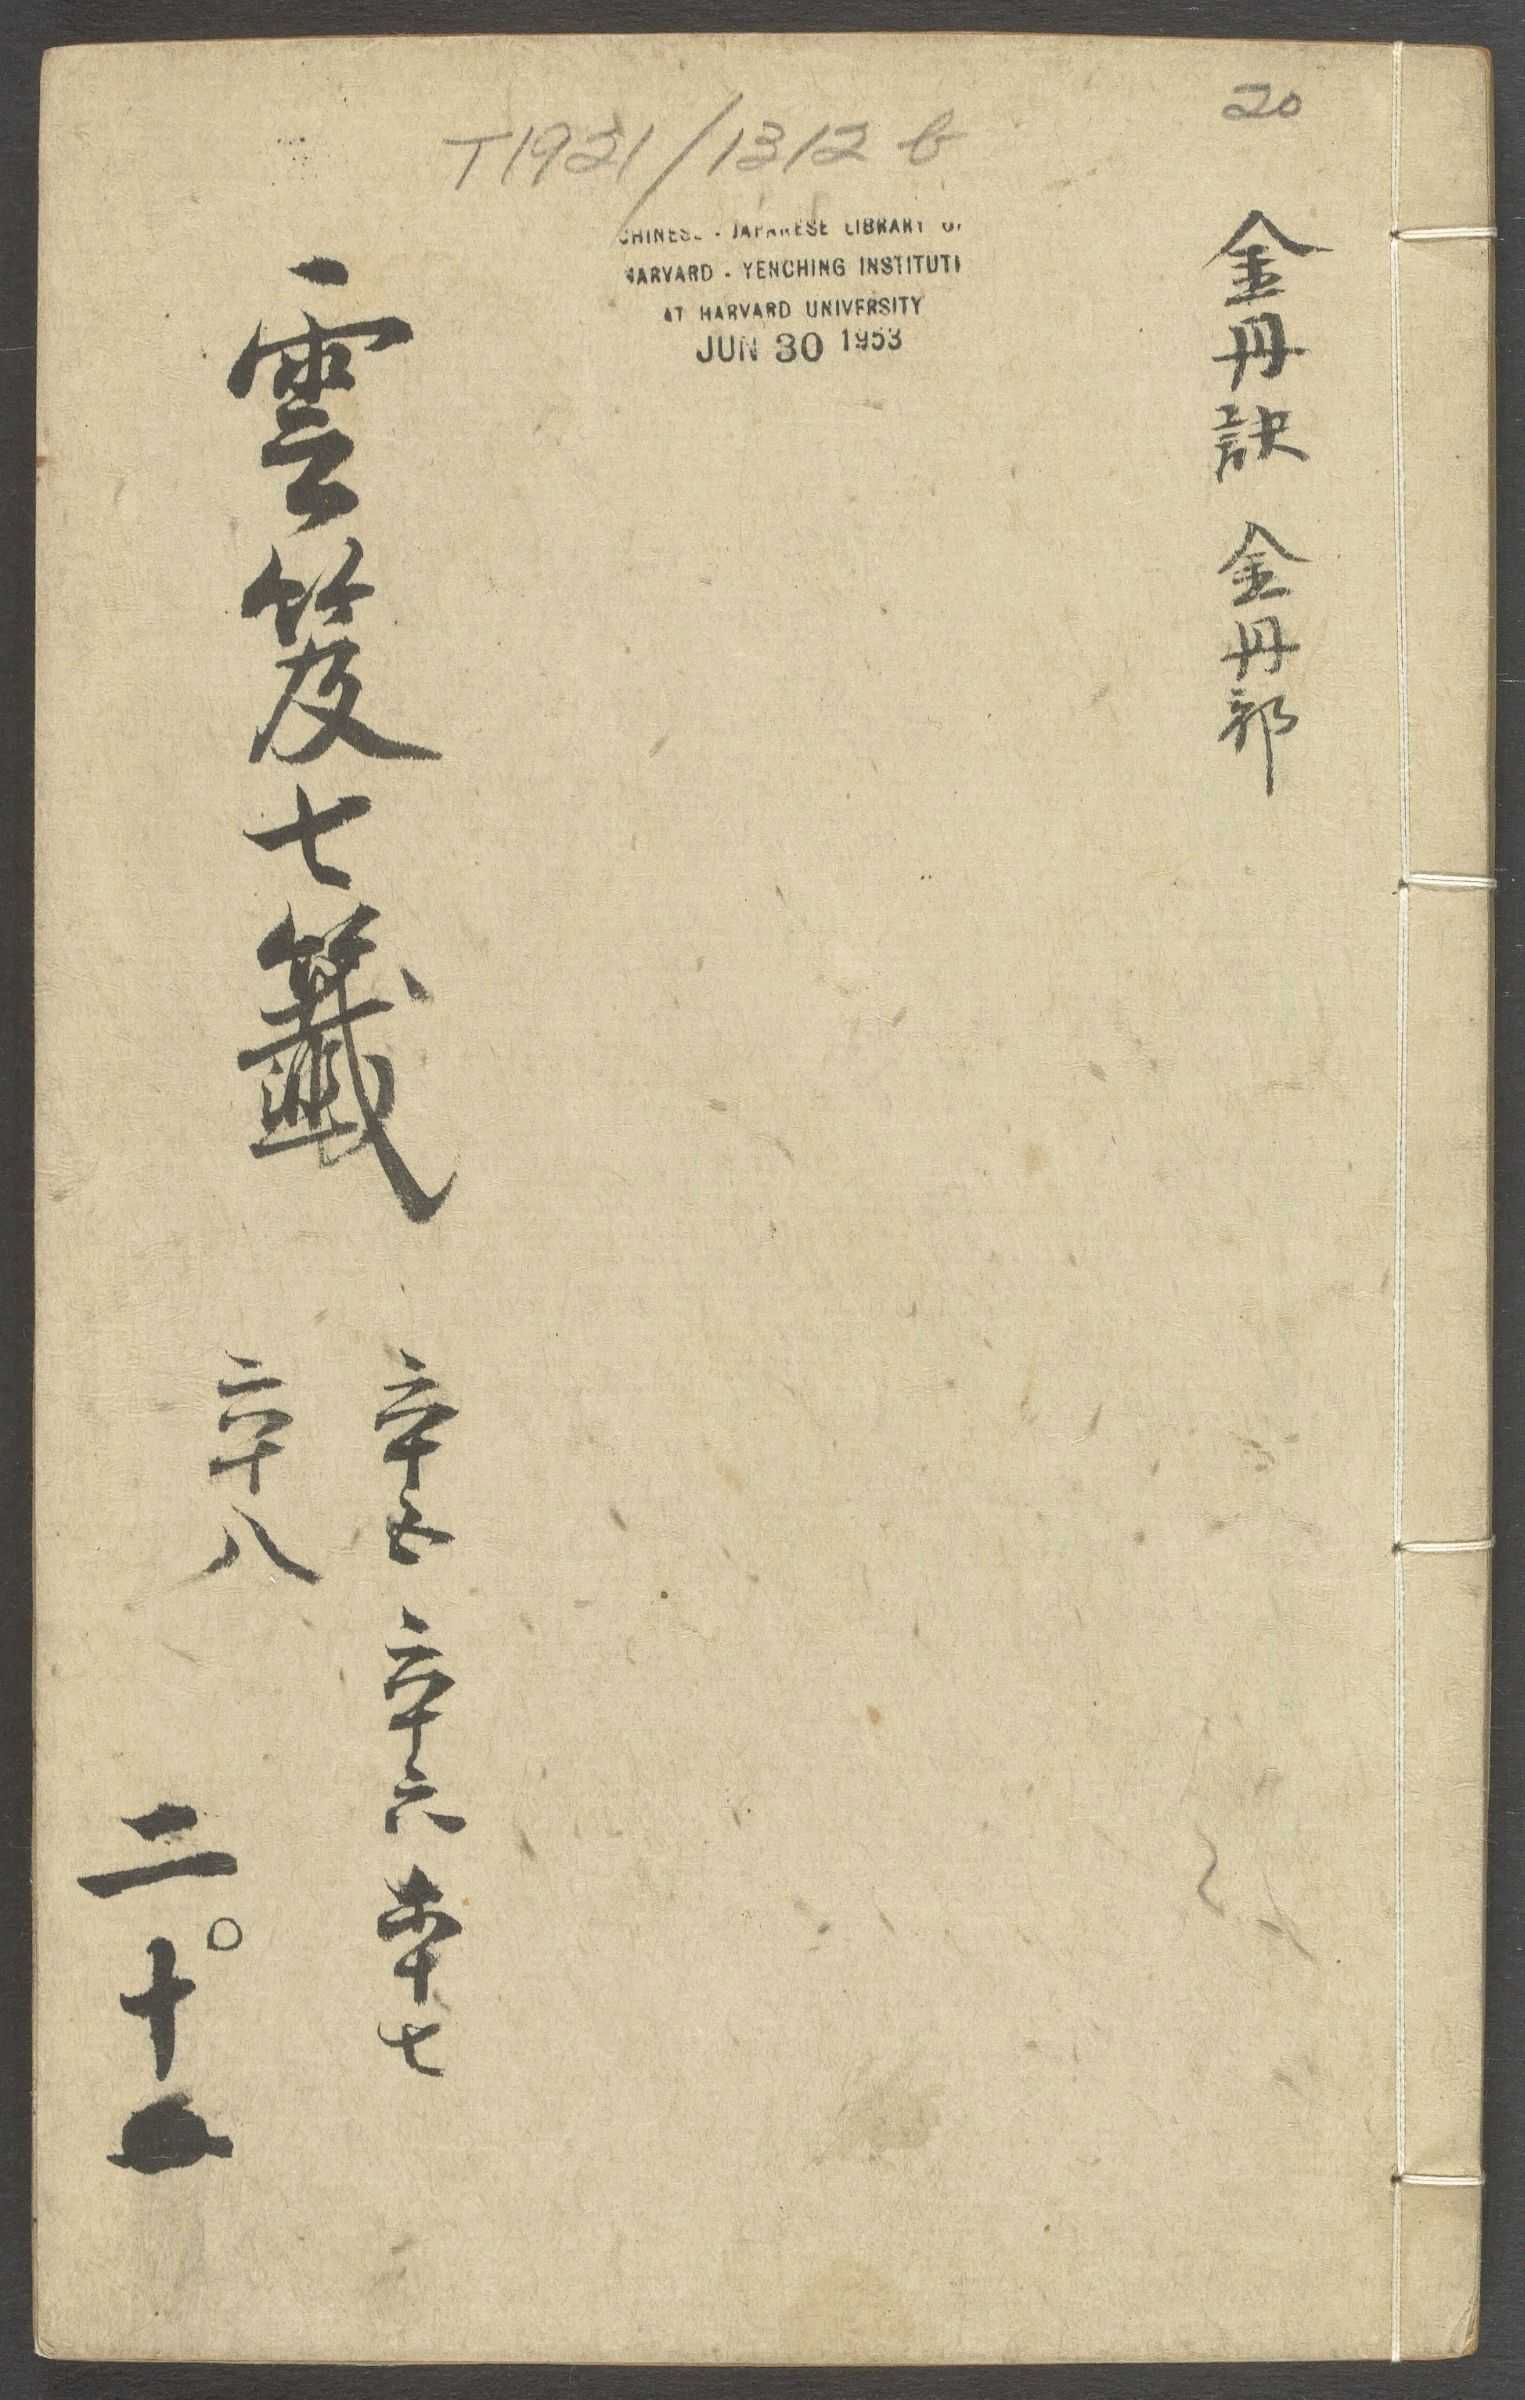 20
T1921/1312 b
CHINESE - JAPANESE LIBRARY OF
HARVARD - YENCHING INSTITUTE
AT HARVARD UNIVERSITY
JUN 30 1953
金丹訣 金丹部
雲笈七籤
六十五 六十六 六十七
六十八
二十